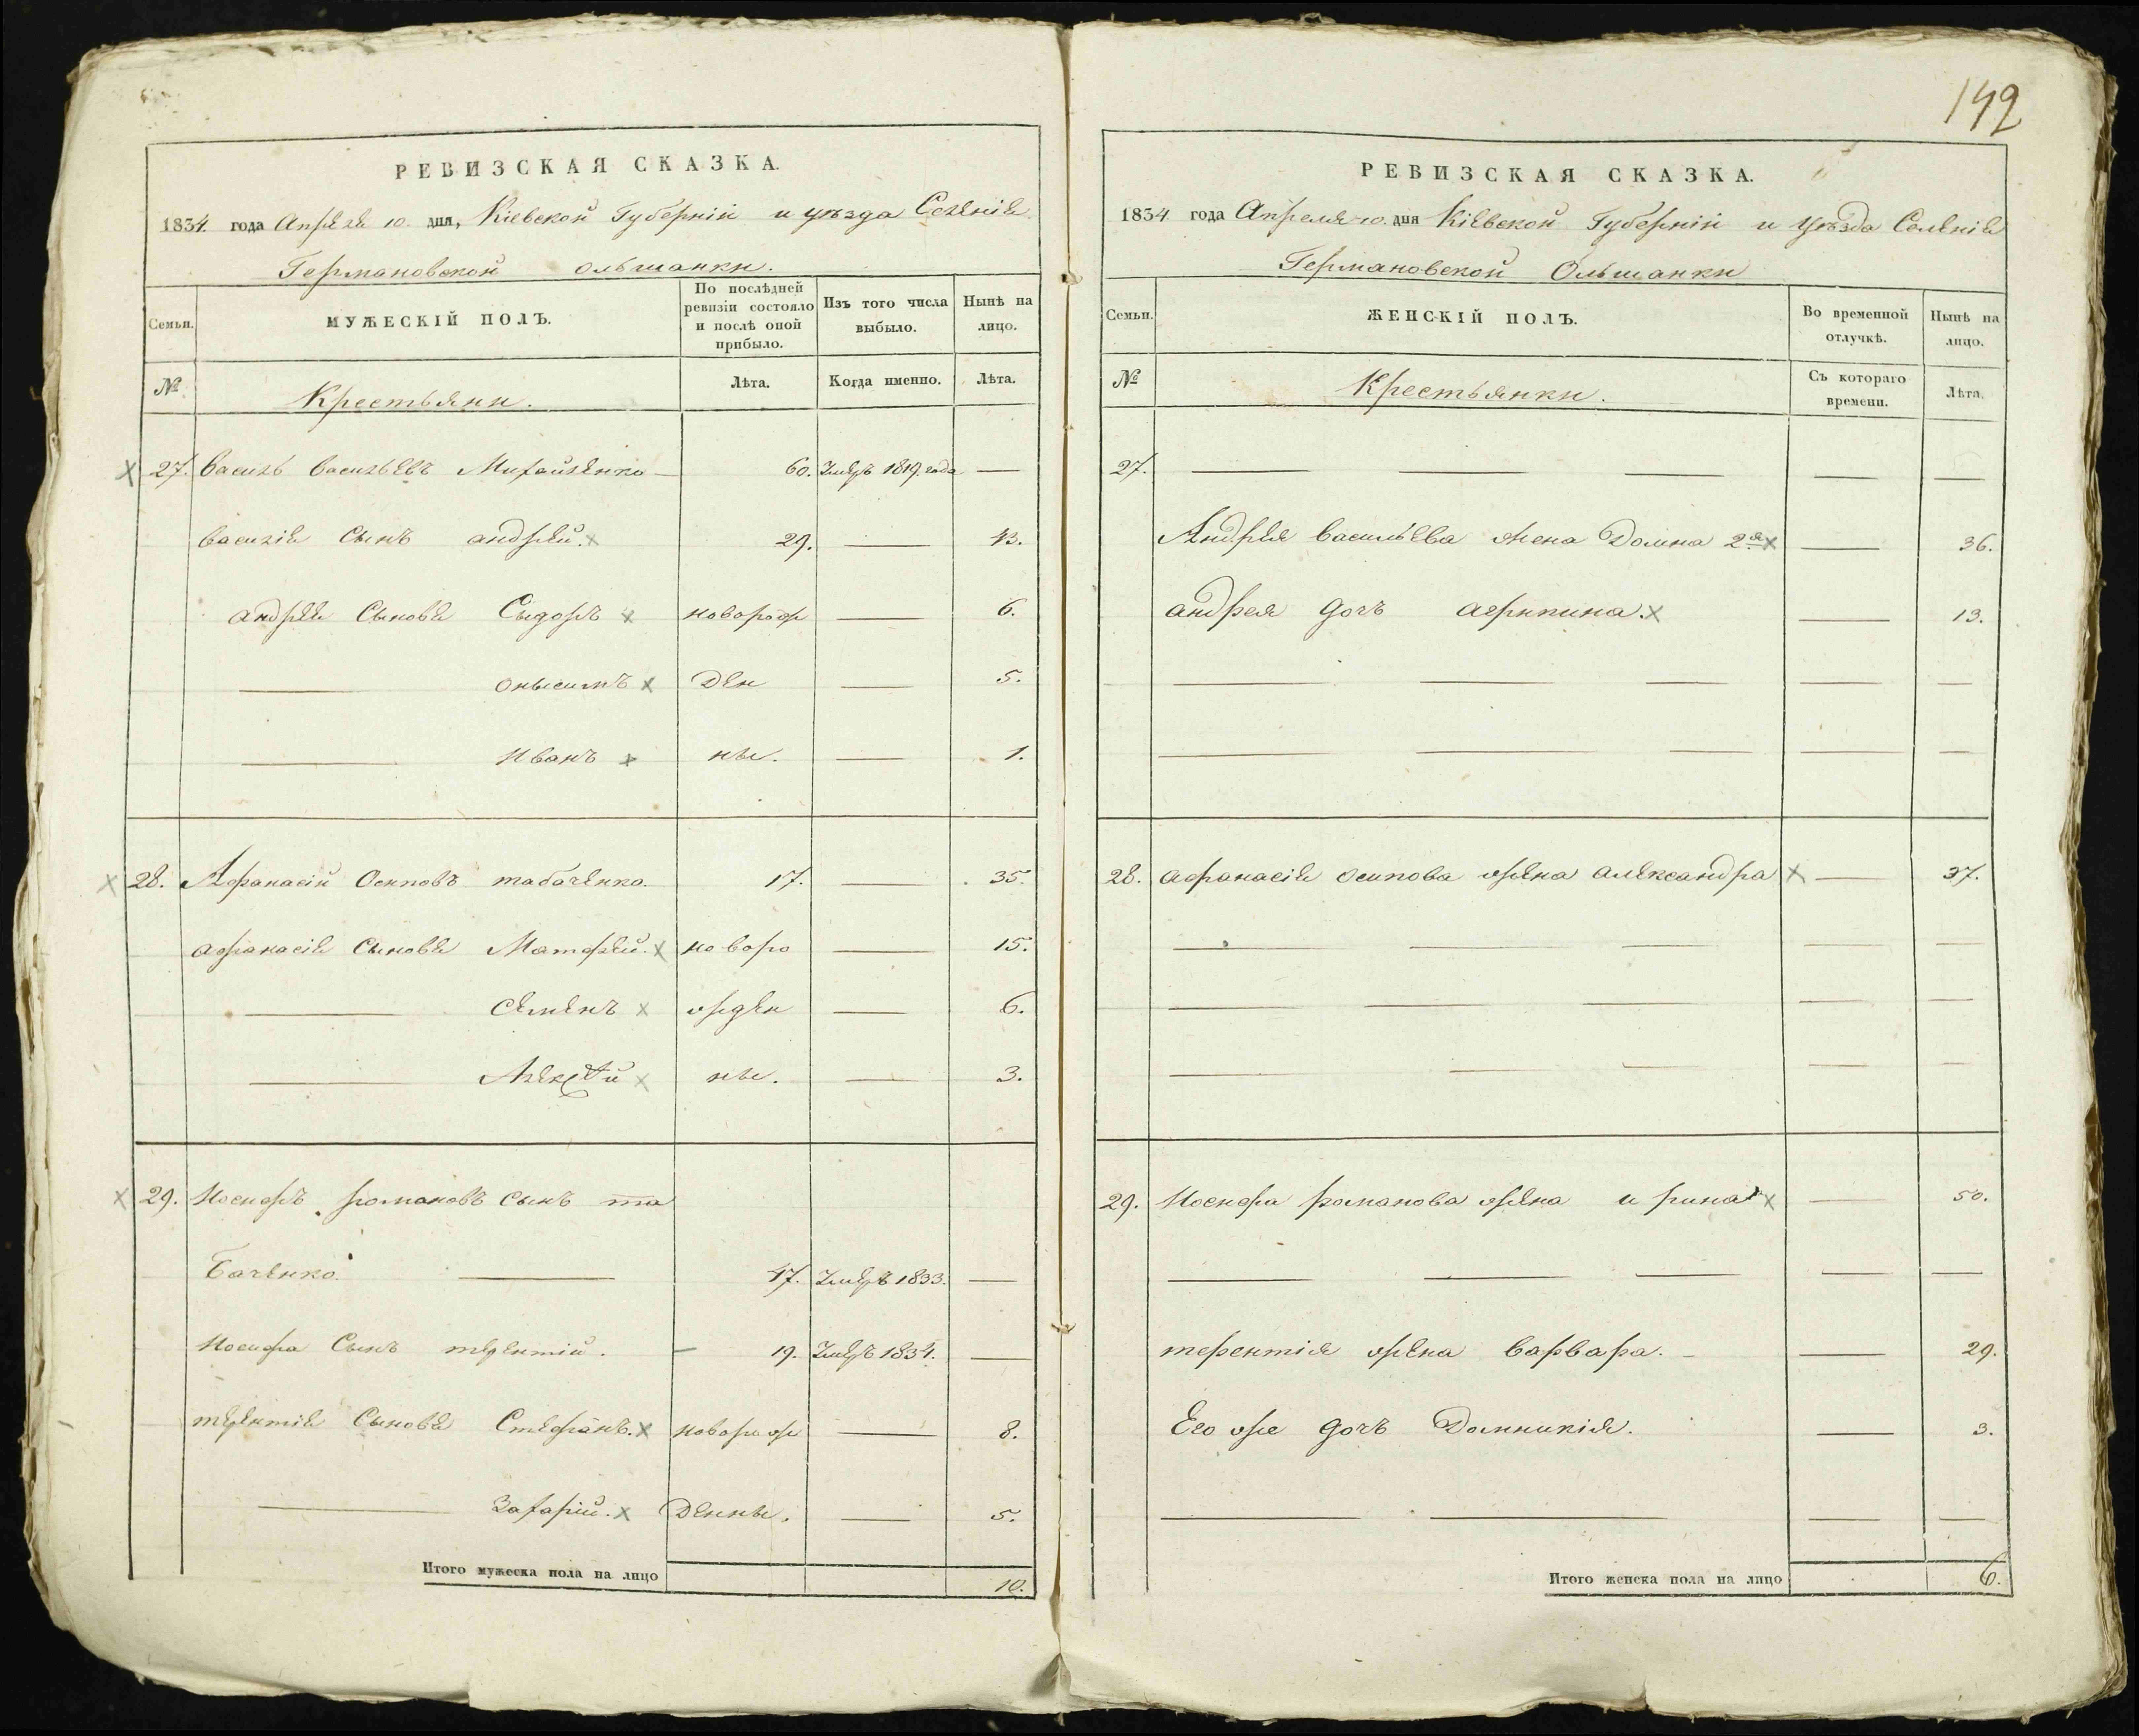 РЕВИЗСКАЯ СКАЗКА.
1834 года Апреля 10. дня, Кіевской Губерніи и уѣзда Селенія
Германовской Ольшанки.
Семьи.
МУЖЕСКІЙ ПОЛЪ.
По послѣдней ревизіи состояло и послѣ оной прибыло.
Изъ того числа выбыло.
Нынѣ на лицо.
№
Крестьяни.
Лѣта.
Когда именно.
Лѣта.
27. Василь Васильевъ Михайленко 60. Умеръ 1819. года —
Василія Сынъ андрей. 29. — 43.
андрея Сыновя Сыдоръ новорож — 6.
— онысимъ Ден — 5.
— Иванъ ны. — 1.
28. Афанасій Осиповъ табаченко. 17. — 35.
афанасія Сыновя Матфей. новоро — 15.
— Семенъ жден — 6.
— Алексѣй ны. — 3.
29. Иосифъ романовъ сынъ та
Баченко. — 47. Умеръ 1833. —
Иосифа Сынъ терентій. — 19. Умеръ 1834. —
терентія Сыновя Стефанъ. новорож — 8.
— Захарій. Денны. — 5.
Итого мужеска пола на лицо 10.
142
РЕВИЗСКАЯ СКАЗКА.
1834 года Апреля 10. дня Кіевской Губерніи и Уѣзда Селенія
Германовской Ольшанки
Семьи.
ЖЕНСКІЙ ПОЛЪ.
Во временной отлучкѣ.
Нынѣ на лицо.
№
Крестьянки.
Съ котораго времени.
Лѣта.
27. — — — — —
Андрея Васильева жена Домна 2я — 36.
андрея дочъ агрипина. — 13.
— — — — —
— — — — —
28. афанасія осипова жена александра — 37.
— — — — —
— — — — —
— — — — —
29. Иосифа романова жена ирина — 50.
— — — — —
терентія жена варвара. — 29.
Его же дочъ Домникія. — 3.
— — — —
Итого женска пола на лицо 6.